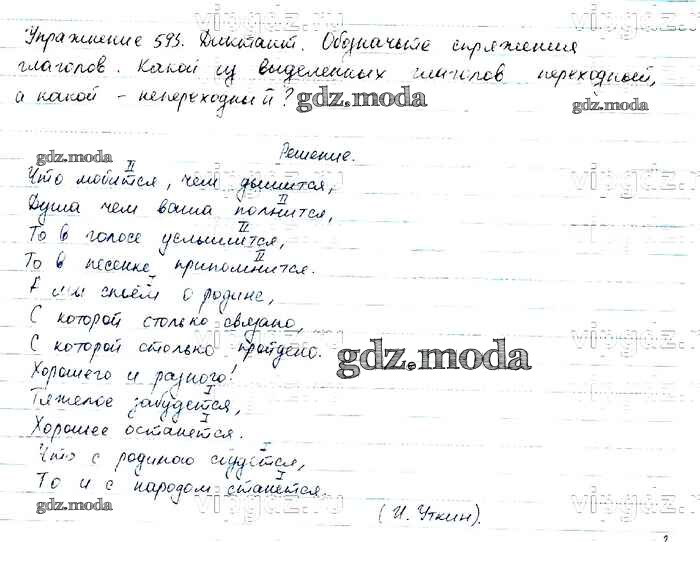 Упражнение 593. Диктант. Обозначьте спряжения
глаголов. Какой из выделенных глаголов переходный,
а какой - непереходный?
gdz.moda
gdz.moda
gdz.moda
Решение.
II
Что любится, чем дышится,
II
Душа чем ваша полнится,
II
То в голосе услышится,
II
То в песенке припомнится.
I
А мы споём о родине,
С которой столько связано,
С которой столько пройдено.
gdz.moda
Хорошего и разного!
I
Тяжелое забудется,
I
Хорошее останется.
I
Что с родиною сбудется,
I
То и с народом станется.
gdz.moda
(И. Уткин).